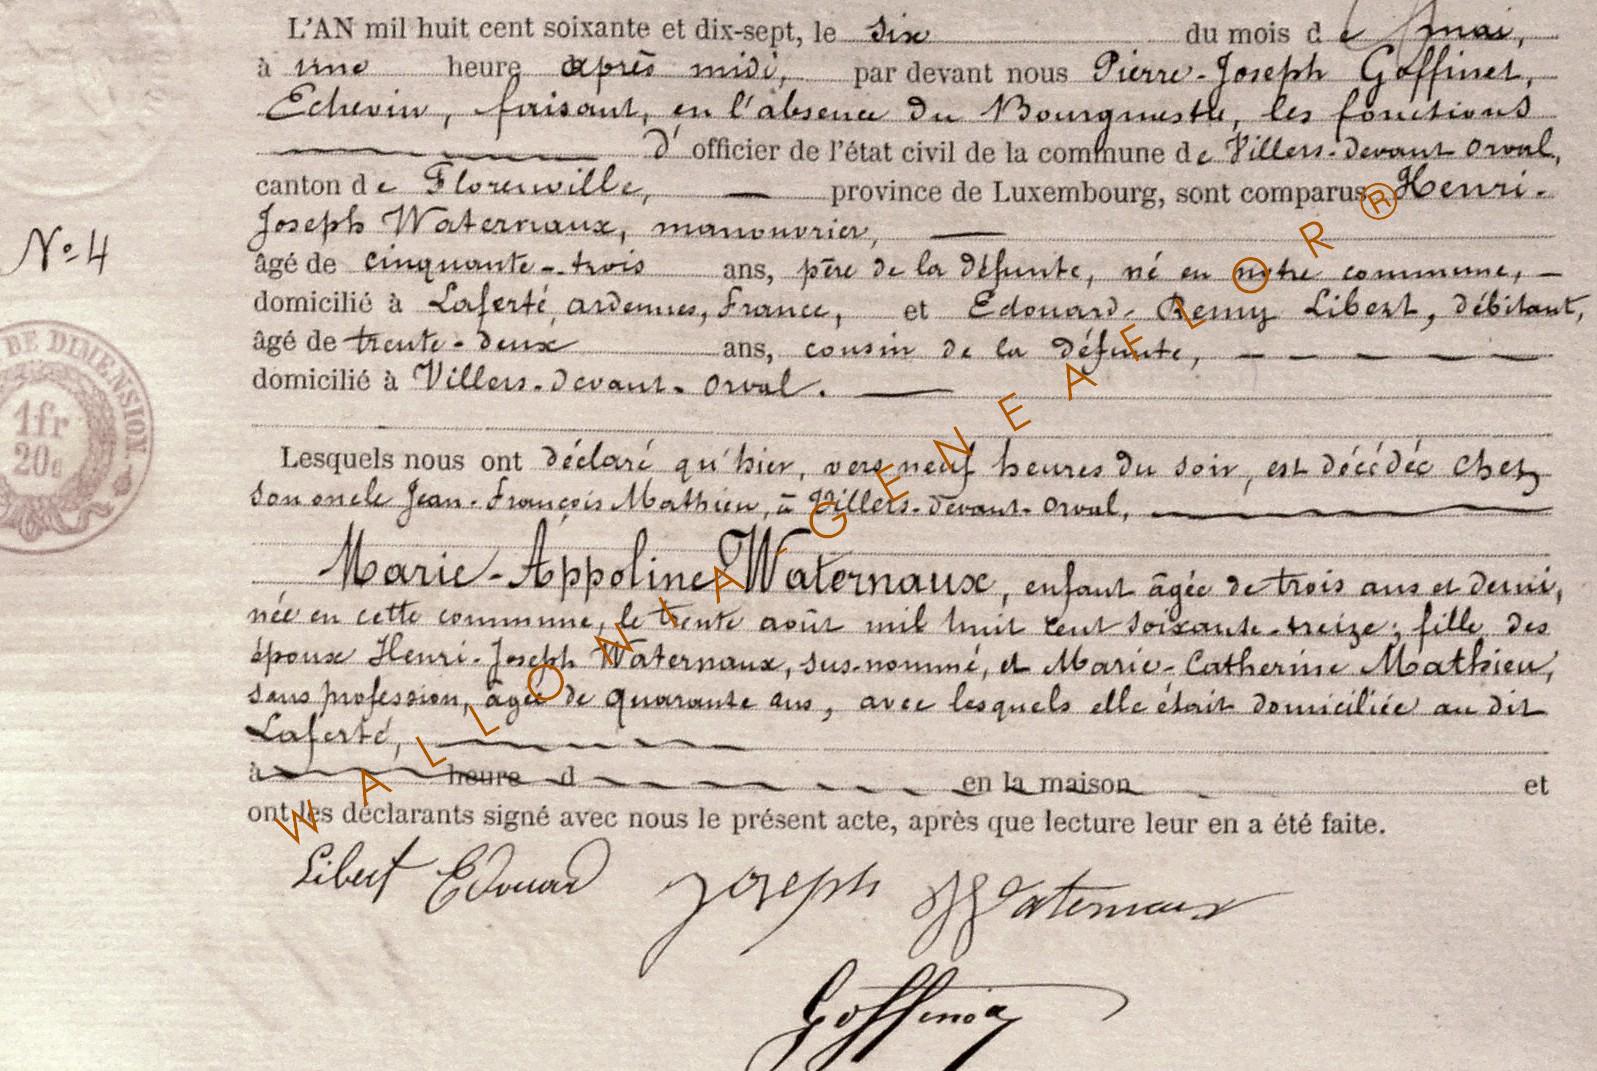 L'AN mil huit cent soixante et dix-sept, le six du mois de mai,
à une heure après midi, par devant nous Pierre-Joseph Goffinet,
Echevin, faisant, en l'absence du Bourgmestre, les fonctions
d'officier de l'état civil de la commune de Villers-devant-Orval,
canton de Florenville, province de Luxembourg, sont comparus Henri-
Joseph Waternaux, manouvrier,
âgé de cinquante-trois ans, père de la défunte, né en notre commune,
domicilié à Laferté, ardennes, France, et Edouard-Remy Libert, débitant,
âgé de trente-deux ans, cousin de la défunte,
domicilié à Villers-devant-Orval.
Lesquels nous ont déclaré qu'hier, vers neuf heures du soir, est décédée chez
son oncle Jean-François Mathieu, à Villers-devant-Orval,
Marie-Appoline Waternaux, enfant âgée de trois ans et demi,
née en cette commune, le trente août mil huit cent soixante-treize; fille des
époux Henri-Joseph Waternaux, sus-nommé, et Marie-Catherine Mathieu,
sans profession, âgée de quarante ans, avec lesquels elle était domiciliée au dit
Laferté,
à heure d en la maison et
ont les déclarants signé avec nous le présent acte, après que lecture leur en a été faite.
Libert Edouard Joseph Waternaux
Goffinet
No 4
DE DIMENSION.
1fr
20c
WALLONIA-GENEAFLOR®